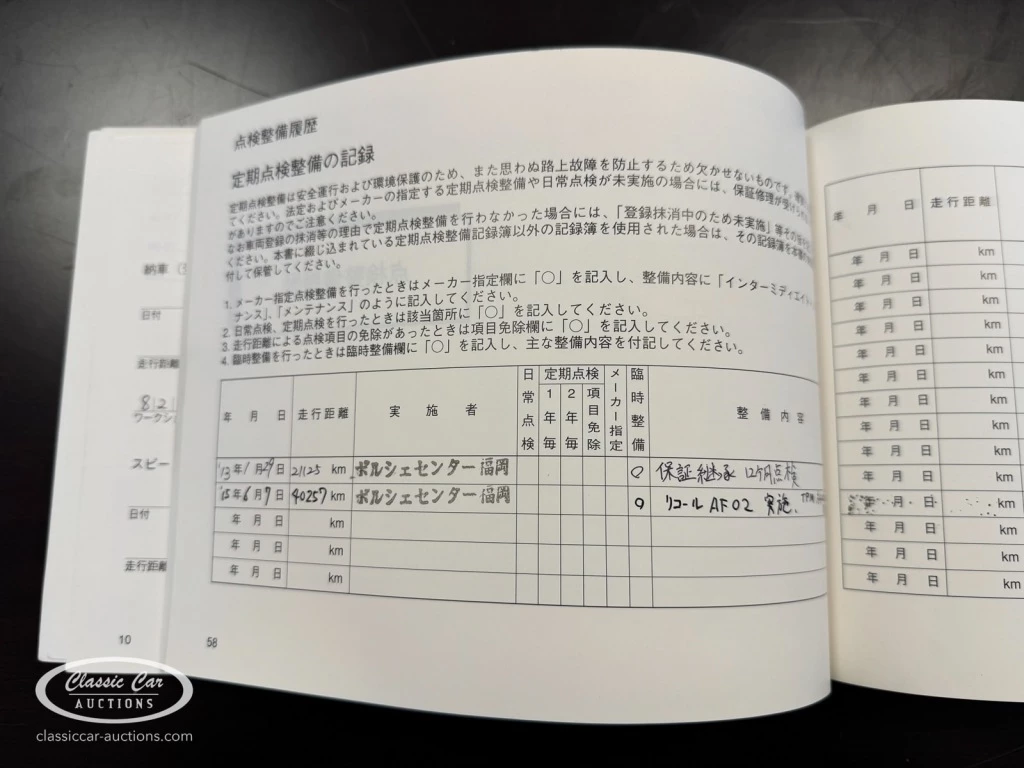 点検整備履歴
定期点検整備の記録
定期点検整備は安全運行および環境保護のため、また思わぬ路上故障を防止するため欠かせないものです。
てください。法定およびメーカーの指定する定期点検整備や日常点検が未実施の場合には、保証修理が受けられ
がありますのでご注意ください。
なお車両登録の抹消等の理由で定期点検整備を行わなかった場合には、「登録抹消中のため未実施」等その旨を
ください。本書に綴じ込まれている定期点検整備記録簿以外の記録簿を使用された場合は、その記録簿を本書
付して保管してください。
1. メーカー指定点検整備を行ったときはメーカー指定欄に「〇」を記入し、整備内容に「インターミディエイト
ナンス」、「メンテナンス」のように記入してください。
2. 日常点検、定期点検を行ったときは該当箇所に「〇」を記入してください。
3. 走行距離による点検項目の免除があったときは項目免除欄に「〇」を記入してください。
4. 臨時整備を行ったときは臨時整備欄に「〇」を記入し、主な整備内容を付記してください。
年 月 日 走行距離 実施者 日常点検 定期点検 1年毎 2年毎 項目免除 メーカー指定 臨時整備 整備内容
'13年1月29日 21125 km ポルシェセンター福岡 〇 保証継承 12ヶ月点検
'15年6月9日 40257 km ポルシェセンター福岡 〇 リコール AF02 実施、
年 月 日 km
年 月 日 km
年 月 日 km
58
納車
日付
走行距離
ワークシ
スピー
日付
走行距離
10
年 月 日 走行距離
年 月 日 km
年 月 日 km
年 月 日 km
年 月 日 km
年 月 日 km
年 月 日 km
年 月 日 km
年 月 日 km
年 月 日 km
年 月 日 km
月 日 km
年 月 日 km
年 月 日 km
年 月 日 km
Classic Car
AUCTIONS
classiccar-auctions.com